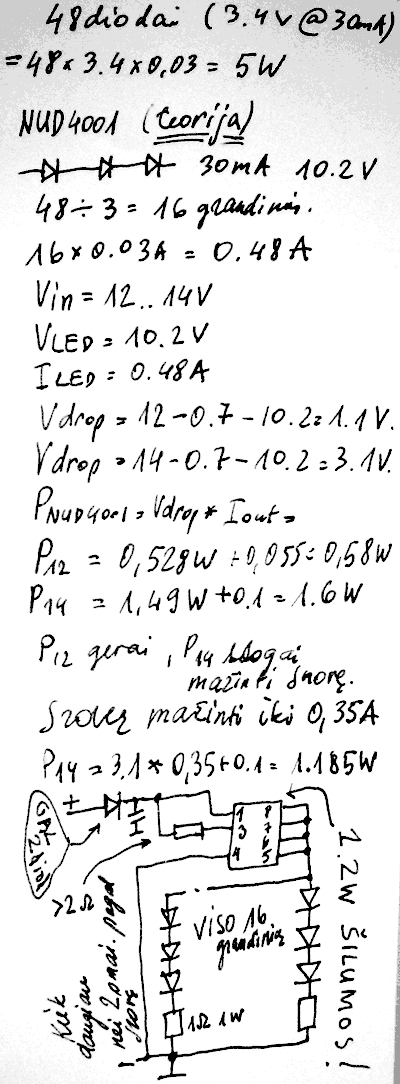 48 diodai (3.4V@30mA)
=48×3.4×0,03 = 5W
NUD4001 (teorija)
30mA 10.2V
48÷3=16 grandinės.
16×0.03A = 0.48A
Vin = 12..14V
VLED = 10.2V
ILED = 0.48A
Vdrop = 12-0.7-10.2=1.1V.
Vdrop = 14-0.7-10.2=3.1V.
PNUD4001 = Vdrop * Iout =
P12 = 0,528W+0,055=0,58W
P14 = 1,49W+0.1=1.6W
P12 gerai, P14 blogai
mažinti srovę.
Srovę mažinti iki 0,35A
P14=3.1*0,35+0.1=1.185W
+
1 8
3 7
6
4 5
>2Ω
1.2W ŠILUMOS!
Viso 16
grandinių
1Ω 1W
Kiek
daugiau
nei 2 omai. pagal
srovę
-